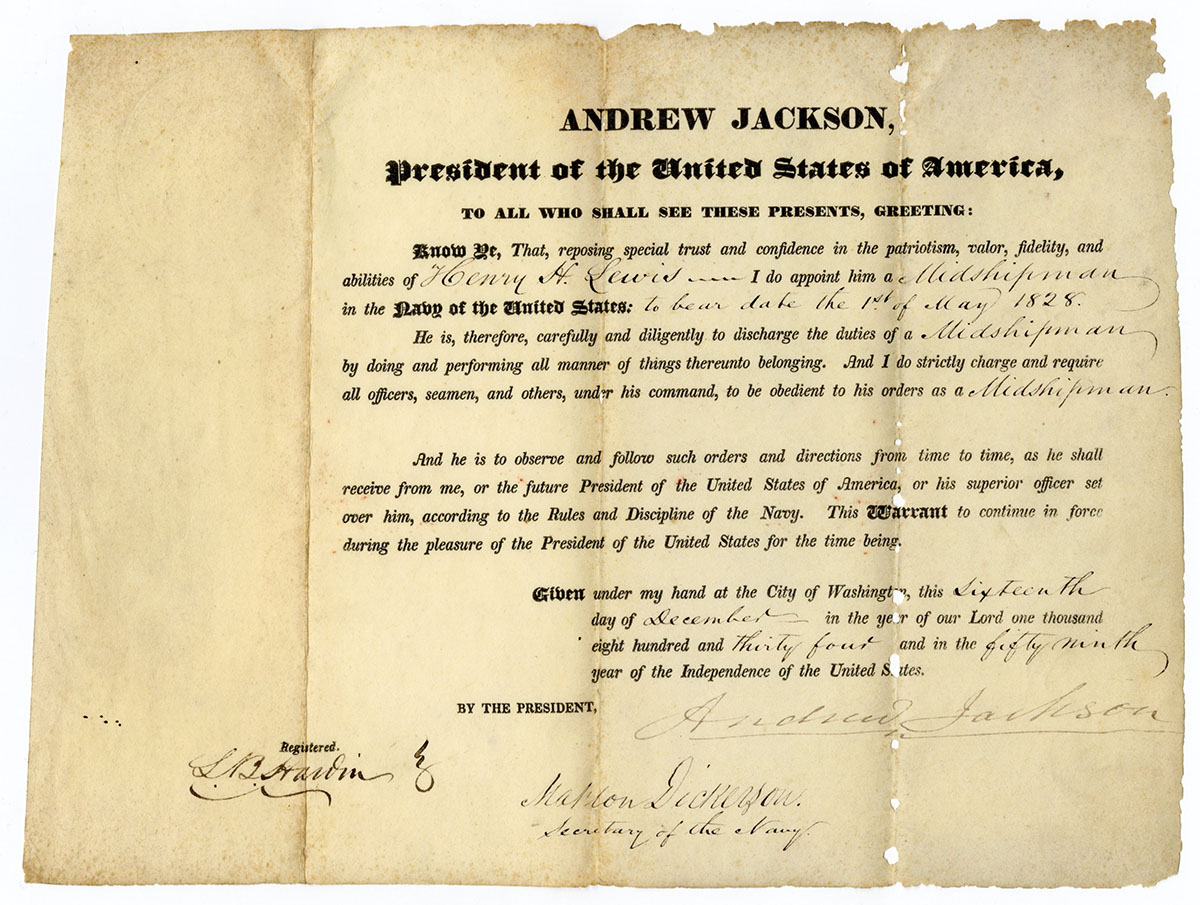 ANDREW JACKSON,
President of the United States of America,
TO ALL WHO SHALL SEE THESE PRESENTS, GREETING:
Know Ye, That, reposing special trust and confidence in the patriotism, valor, fidelity, and
abilities of Henry H. Lewis —— I do appoint him a Midshipman
in the Navy of the United States: to bear date the 1st of May 1828.
He is, therefore, carefully and diligently to discharge the duties of a Midshipman
by doing and performing all manner of things thereunto belonging. And I do strictly charge and require
all officers, seamen, and others, under his command, to be obedient to his orders as a Midshipman.
And he is to observe and follow such orders and directions from time to time, as he shall
receive from me, or the future President of the United States of America, or his superior officer set
over him, according to the Rules and Discipline of the Navy. This Warrant to continue in force
during the pleasure of the President of the United States for the time being.
Given under my hand at the City of Washington, this Sixteenth
day of December in the year of our Lord one thousand
eight hundred and thirty four and in the fifty ninth
year of the Independence of the United States.
BY THE PRESIDENT,
Andrew Jackson
Registered.
L. B. Hardin
Mahlon Dickerson.
Secretary of the Navy.